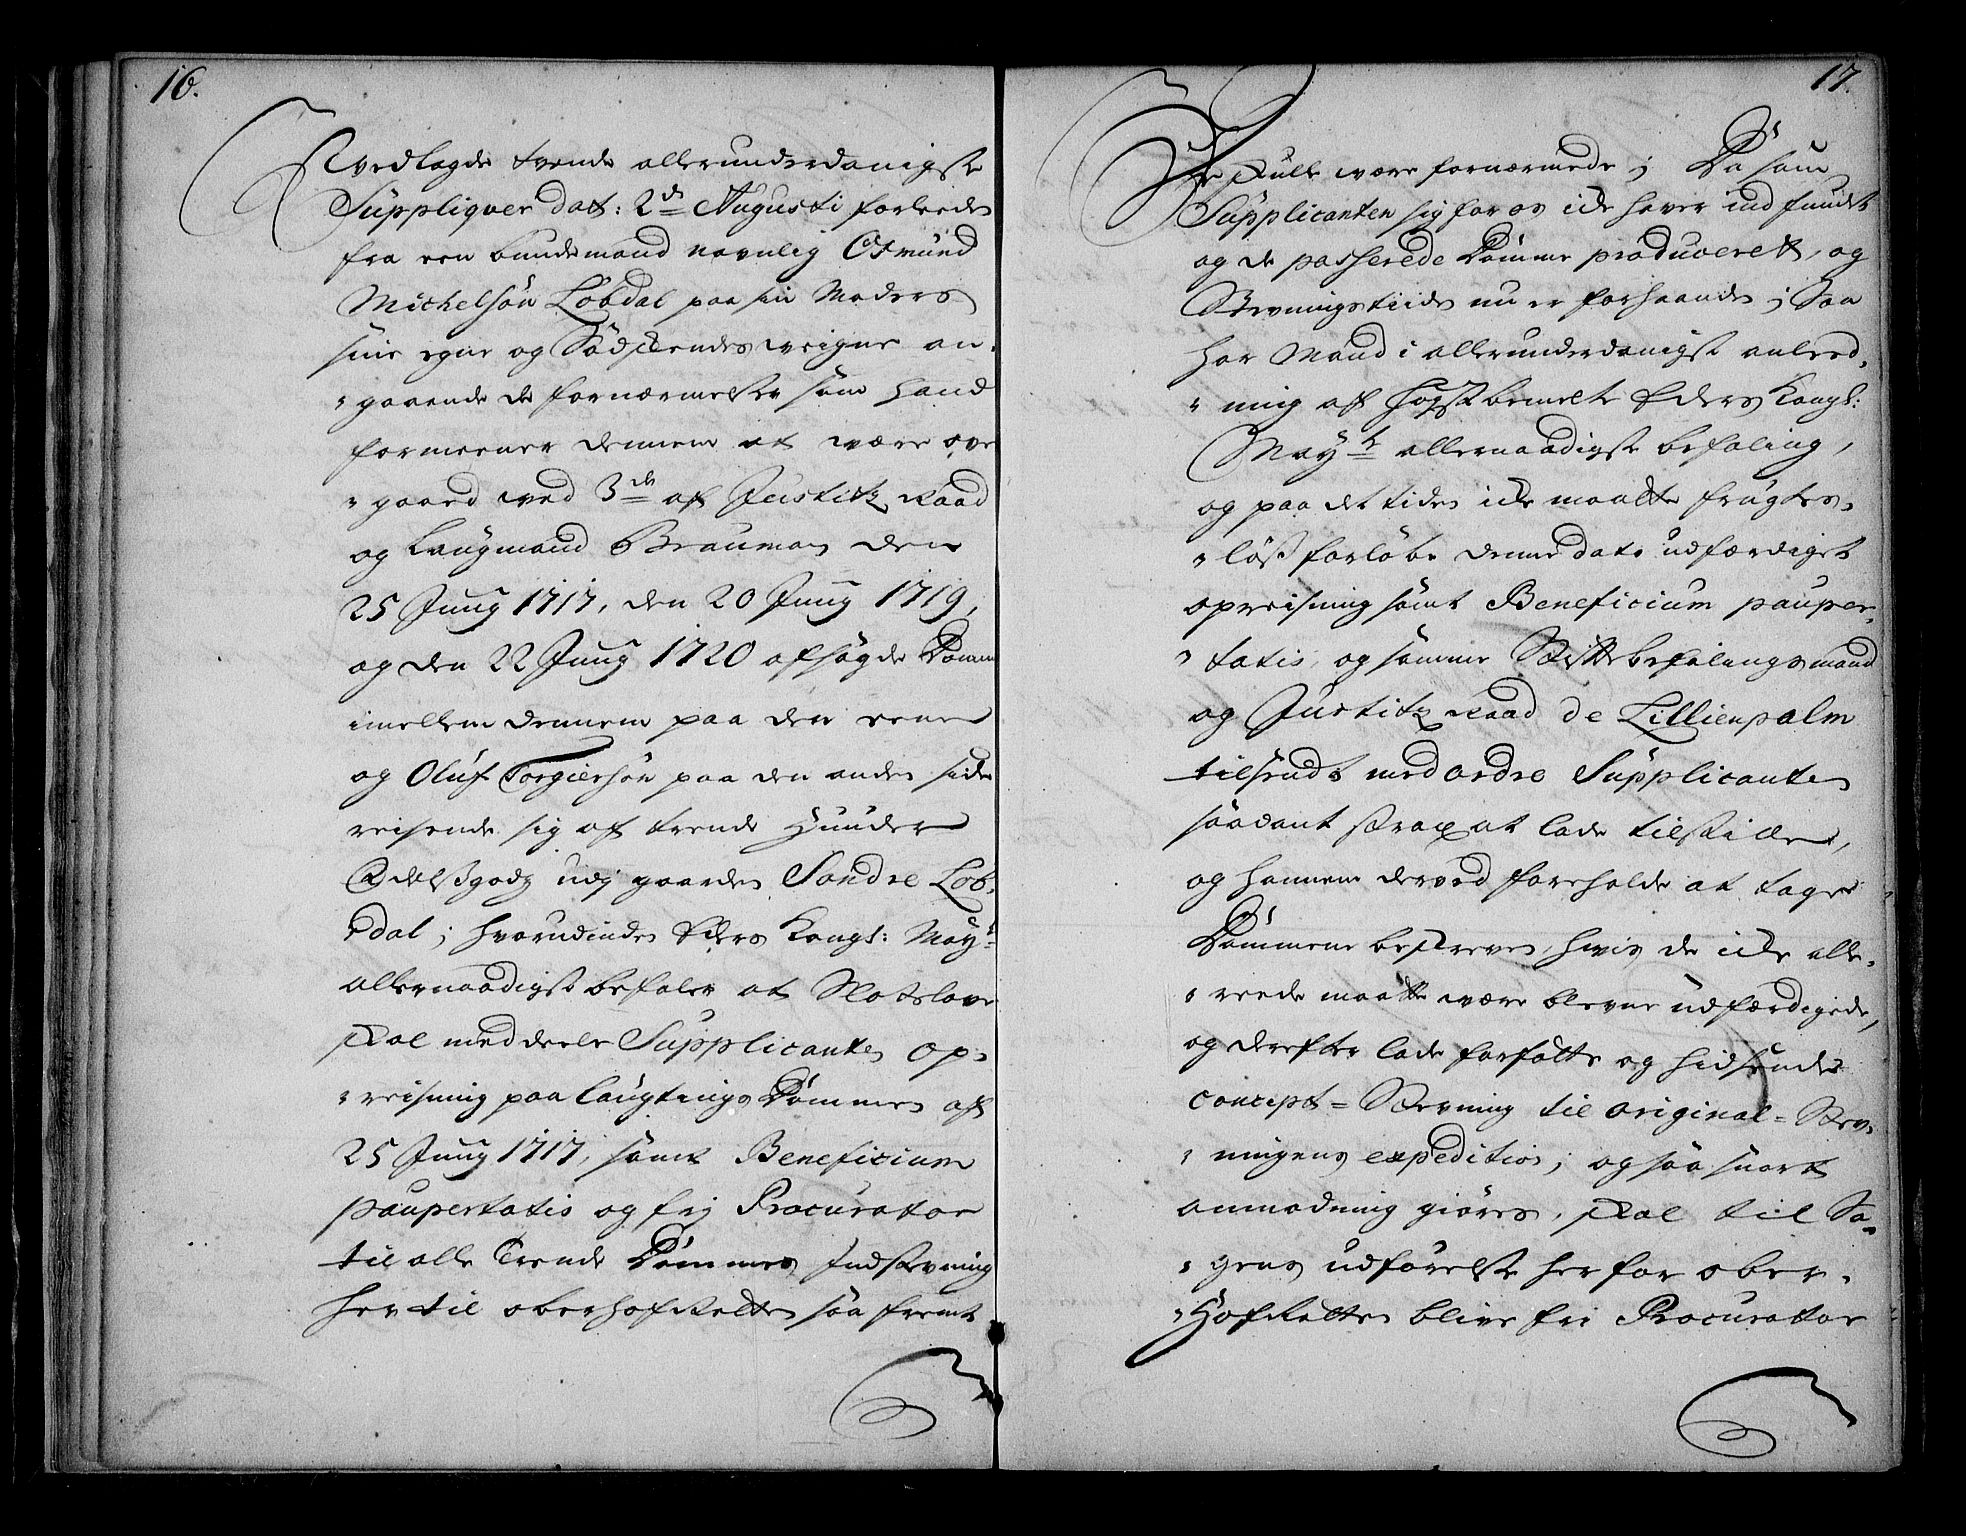 16.
vedlagde tvende allerunderdanigste
Suppliqver dat: 2d Augusti sidst
fra een bundemand navnlig Osmund
Michelsön Lobdal paa sin Moders
sine egne og Södskendes veigne an-
gaaende de fornærmelser som hand
formeener dennem at være over
gaaed ved 3de af Justitz Raad
og Laugmand Brauman den
25 Junij 1717, den 20 Junij 1719,
og den 22 Junij 1720 afsagde Domme
imellem dennem paa den eene
og Oluf Torgiersön paa den anden side
reisende sig af trende Hunder
Odelsgodz udj gaarden Söndre Lob-
dal; hvorudinden Eders Kongl: Mayt
allernaadigst befaler at Slotsloven
skal meddeele Supplicanten op-
reisning paa laugtings Dommen af
25 Junij 1717, samt Beneficium
paupertatis og frj Procurator
til alle Trende Dommes Indstevning
her til oberhofRetten saa fremt
17.
De skulle være fornærmede; Da som
Supplicanten sig for os icke haver indfundet
og de passerede Domme produceret, og
Stevnings tiiden nu er forhaanden; Saa
har Mand i allerunderdanigst anleed-
ning af höystbemelte Eders Kongl:
Mayts allernaadigste befaling,
og paa det tiden icke maatte frugtes-
löss forlöbe denne dato udfærdiget
opreisning samt Beneficium pauper-
tatis, og samme Stiftbefalingsmand
og Justitz Raad de Lillienpalm
tilsendt med ordre Supplicanten
saadant strax at lade tilstille,
og hannem derved foreholde at tage
Dommene beskreven, hvis de icke alle-
reede maatte være blevne udfærdigede,
og derefter lade forfatte og hidsende
concept = Stevning til original = Stev-
ningens expedition; og saa snart
anmodning giöres, skal til Sa-
gens udförelse her for ober-
HofRetten blive fri Procurator